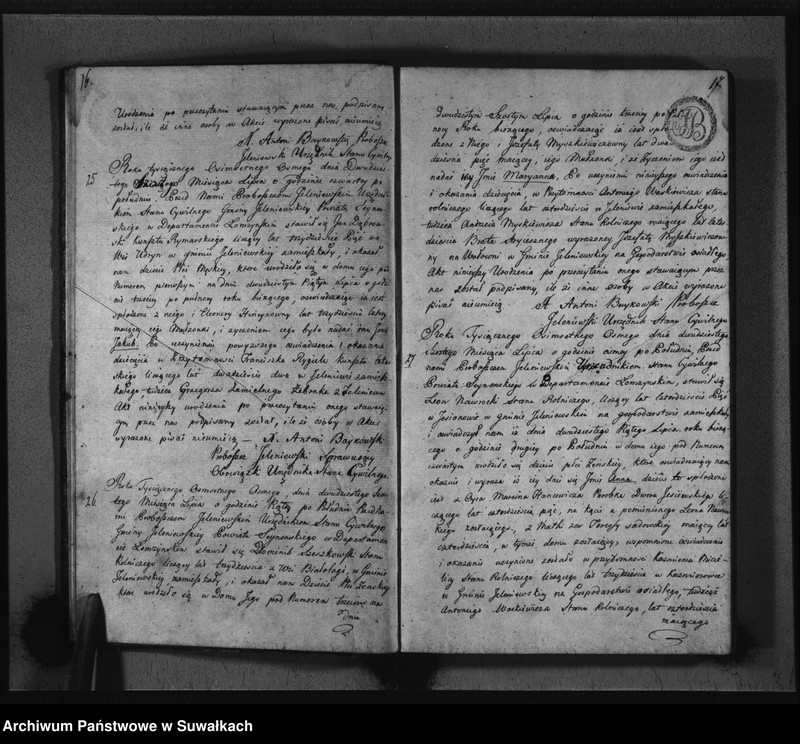 16.
Urodzenia po przeczytaniu stawaiącym przez nas, podpisany
został, ile że inne osoby w Akcie wyrażone pisać nieumieią
X. Antoni Baykowski Proboszcz
Jeleniewski Urzędnik Stanu Cywilny
25
Roku Tysiącznego Osimsetnego Osmego dnia Dwudzies-
tego Miesiąca Lipca o godzinie czwarty po
południu, Przed Nami Proboszczem Jeleniewskim Urzęd-
nikiem Stanu Cywilnego Gminy Jeleniewskiey Powiatu Seynen-
skiego w Departamencie Łomżyńskim stawił się Jan Dąbrow-
ski Kunsztu Rymarskiego liczący lat trzydzieście Pięć na
Wsi Udryn w gminie Jeleniewskiey zamieszkały, i okazał
nam dziecie Płci Męskiey, które urodziło się w domu iego pod
Numerem pierwszym, na dniu dwudziestym Piątym Lipca o godzi-
nie trzeciey po pułnocy roku bieżącego, oswiadczaiąc iż iest
spłodzone z niego i Eleonory lat trzydzieście cztery
maiącey iego Małżonki, i życzeniem iego było nadać mu Jmie
Jakub. Po uczynieniu powyższego oswiadczenia i okazania
dziecięcia w Przytomności Franciszka Rygiela kunsztu
skiego liczącego lat dwadzieścia dwa w Jeleniewie zamiesz-
kałego, tudzież Grzegorza z Jeleniewa
Akt ninieyszy urodzenia po przeczytaniu onego stawaią-
cym przez nas podpisany został, ile że osoby w Akcie
wyrażone pisać nieumieią — X. Antoni Baykowski
Proboszcz Jeleniewski Sprawuiący
Obowiązki Urzędnika Stanu Cywilnego
26
Roku Tysiącznego Osmsetnego Osmego dnia dwudziestego Szos-
tego Miesiąca Lipca o godzinie Piąty po Południu Przed Na-
mi Proboszczem Jeleniewskim Urzędnikiem Stanu Cywilnego
Gminy Jeleniewskiey Powiatu Seynenskiego w Departamen-
cie Łomżynskim stawił się Szeszkowski Stanu
Rolniczego liczący lat trzydzieścia z Wsi Białorogi, w Gminie
Jeleniewskiey zamieszkały, i okazał nam Dziecie Płci Żenskiey
które urodziło się w Domu Jego pod Numerem trzecim na
dniu
17.
dwudziestym Szostym Lipca o godzinie trzeciey po Puł-
nocy Roku bieżącego, oswiadczaiąc iż iest spło-
dzone z Niego i Jozefaty Myszkiewiczowny lat dwa-
dzieścia pięć maiącey, iego Małżonki, i że życzeniem iego iest
nadać iey Jmie Maryanna. Po uczynieniu ninieyszego oswiadczenia
i okazania dziecięcia, w Przytomności Antoniego Waskiewicza stanu
rolniczego liczącego lat czterdzieścia w Jeleniewie zamieszkałego,
tudzież Andrzeia Myszkiewicza Stanu Rolniczego maiącego lat czter-
dzieścia Brata Stryiecznego wyrażoney Jozefaty Myszkiewiczow-
ny na Wołowni w Gminie Jeleniewskiey na Gospodarstwie osiadłego
Akt ninieyszy Urodzenia po przeczytaniu onego stawaiącym przez
nas został podpisany, ile że inne osoby w Akcie wyrażone
pisać nieumieią X Antoni Baykowski Proboszcz
Jeleniewski Urzędnik Stanu Cywilnego
27
Roku Tysiącznego Osimsetnego Osmego dnia dwudziestego
Szostego Miesiąca Lipca o godzinie osmey po Południu, Przed
nami Proboszczem Jeleniewskim Urzędnikiem Stanu Cywilnego
Powiatu Seynenskiego w Departamencie Łomżynskim, stawił się
Leon Nawrocki Stanu Rolniczego, liczący lat czterdzieście Pięć
w Jesionowie w gminie Jeleniewskiey na gospodarstwie zamieszkały
i oswiadczył nam iż dnia dwudziestego Piątego Lipca roku bieżą-
cego o godzinie drugiey po Południu w domu iego pod Numerem
czwartym urodziło się dziecie płci Żeńskiey, które oswiadczaiący nam
okazuie i wyraża iż iey daie się Jmie Anna, dziecie to spłodzone
iest z Oyca Marcina Parobka Dworu li-
czącego lat czterdzieścia pięć, na kącie u pomienionego Leona Nawroc-
kiego zostaiącego, z Matki zaś Teressy maiącey lat
czterdzieścia, w tymże domu zostaiącey, wspomnione oswiadczenie
i okazanie uczynione zostało w przytomności Kazimierza
Stanu Rolniczego liczącego lat trzydzieścia w Kazimierowce
w Gminie Jeleniewskiey na Gospodarstwie osiadłego, tudzież
Antoniego Waskiewicza Stanu Rolniczego, lat czterdzieścia
maiącego
Archiwum Państwowe w Suwałkach